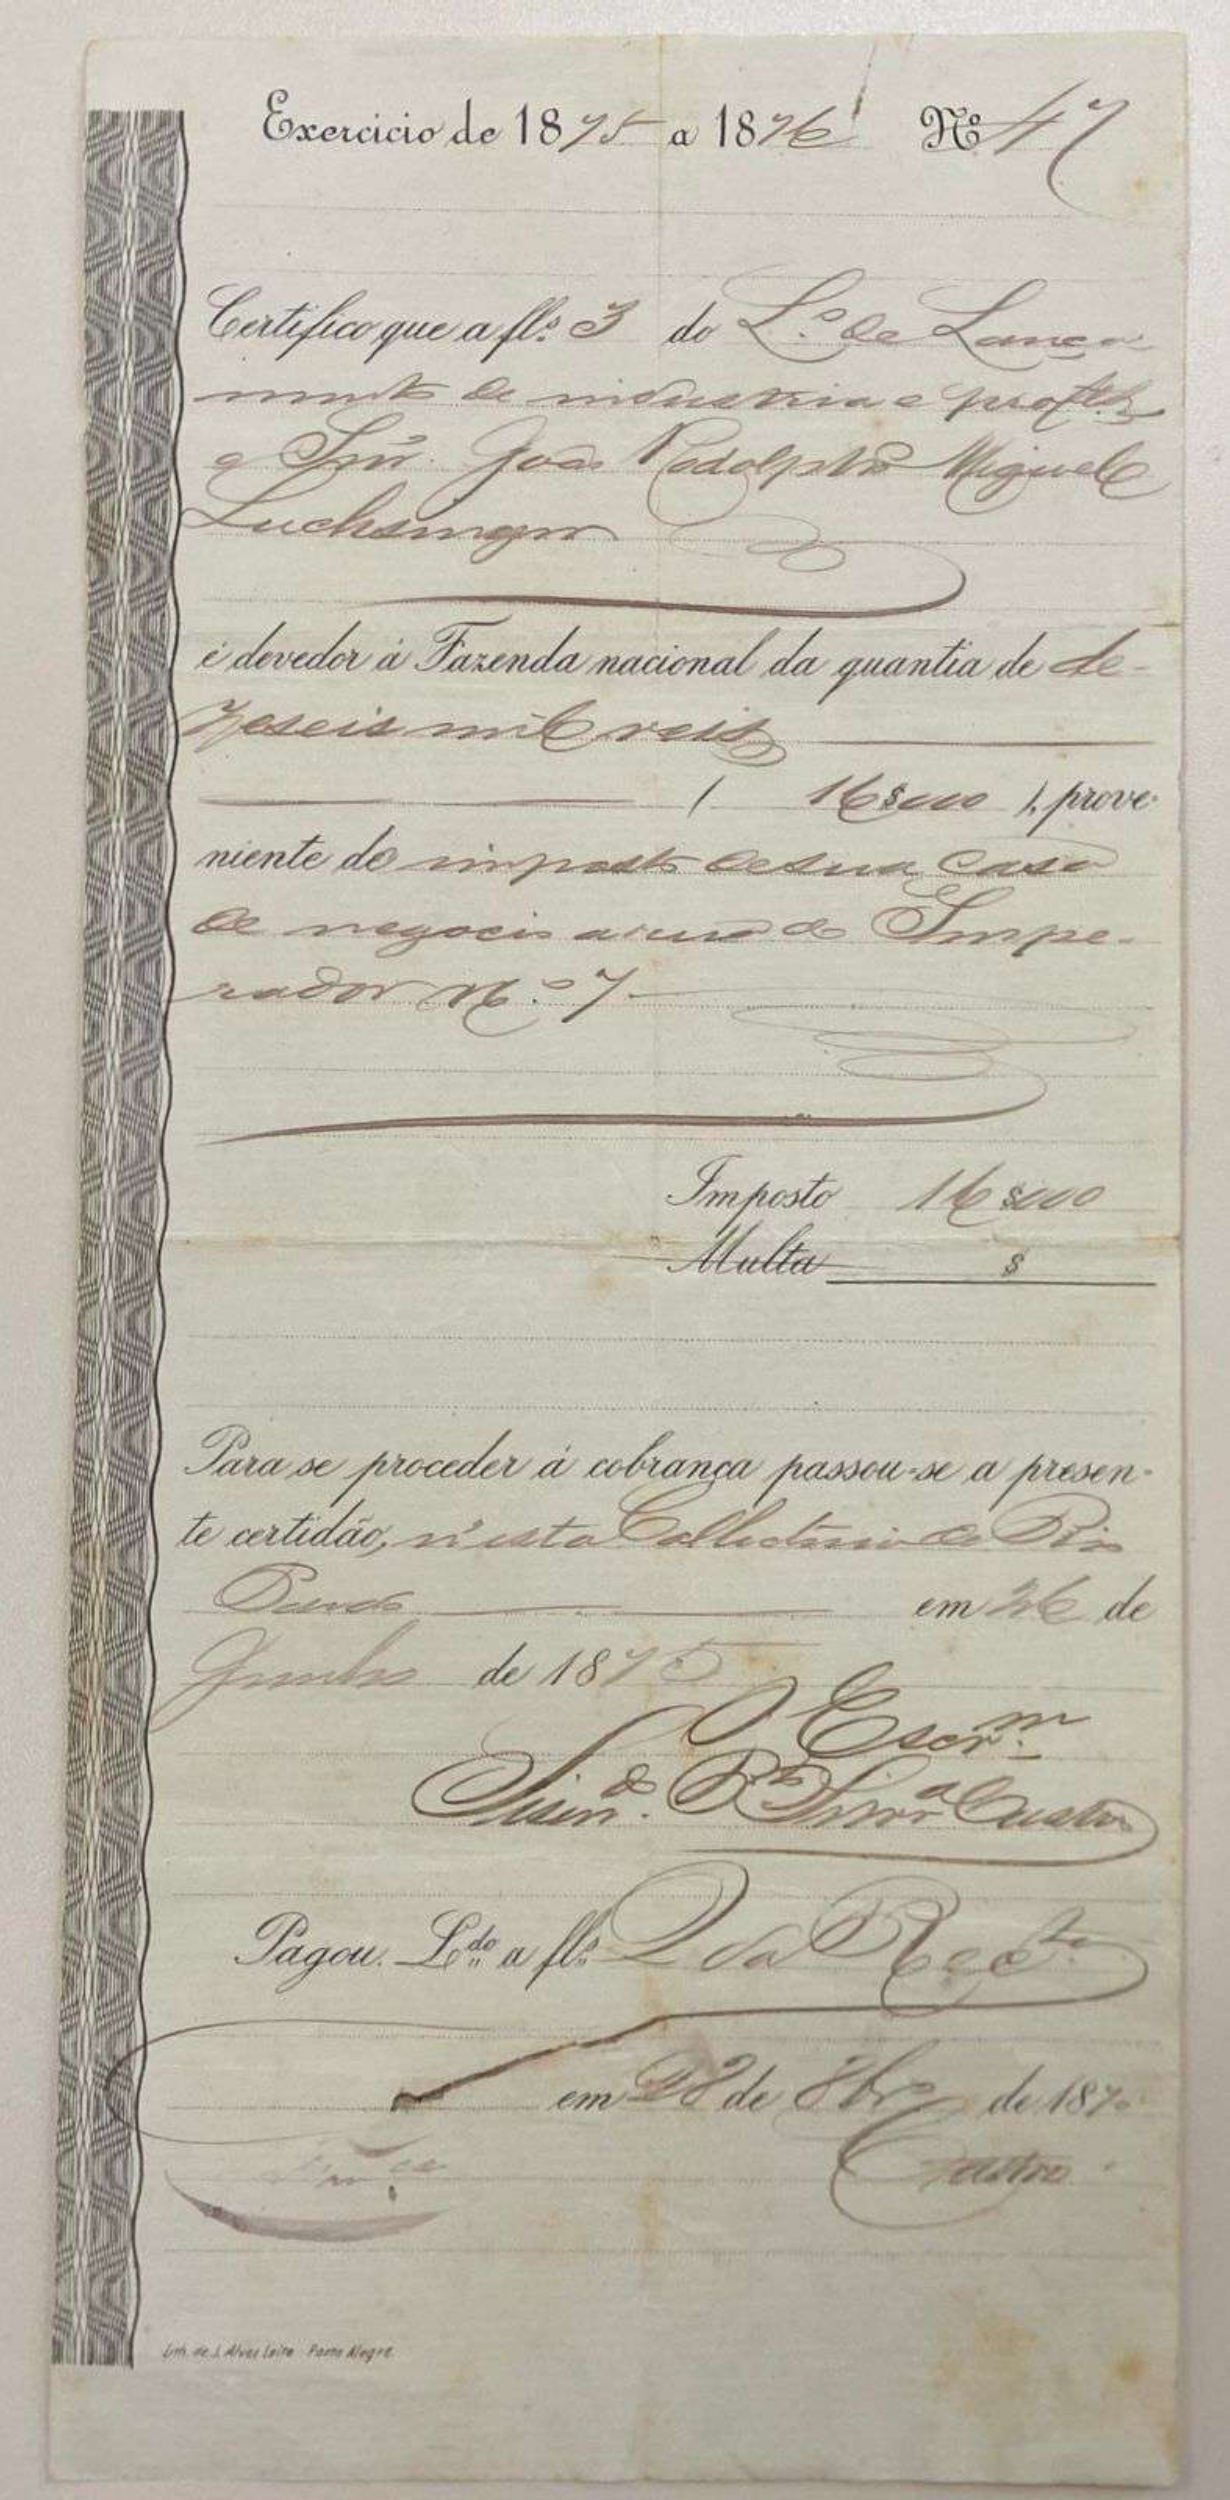 Exercicio de 1875 a 1876 Nº 47
Certifico que a fls. 3 do Lº de Lança-
mento de industria e profes
o Snr. João Rodolpho Miguel
Luchsinger
é devedor á Fazenda nacional da quantia de de-
zeseis mil reis
( 16$000 ), prove-
niente do imposto de sua casa
de negocio a rua do Impe-
rador Nº 7
Imposto 16$000
Multa $
Para se proceder á cobrança passou-se a presen-
te certidão, n'esta Collectoria do Rio
Pardo em 26 de
Junho de 1875
O Escrm
Castro
Pagou. Ldo a fls 2 da Recta
em 28 de 8bro de 187
Castro
Lith. de J. Alves Leite Porto Alegre